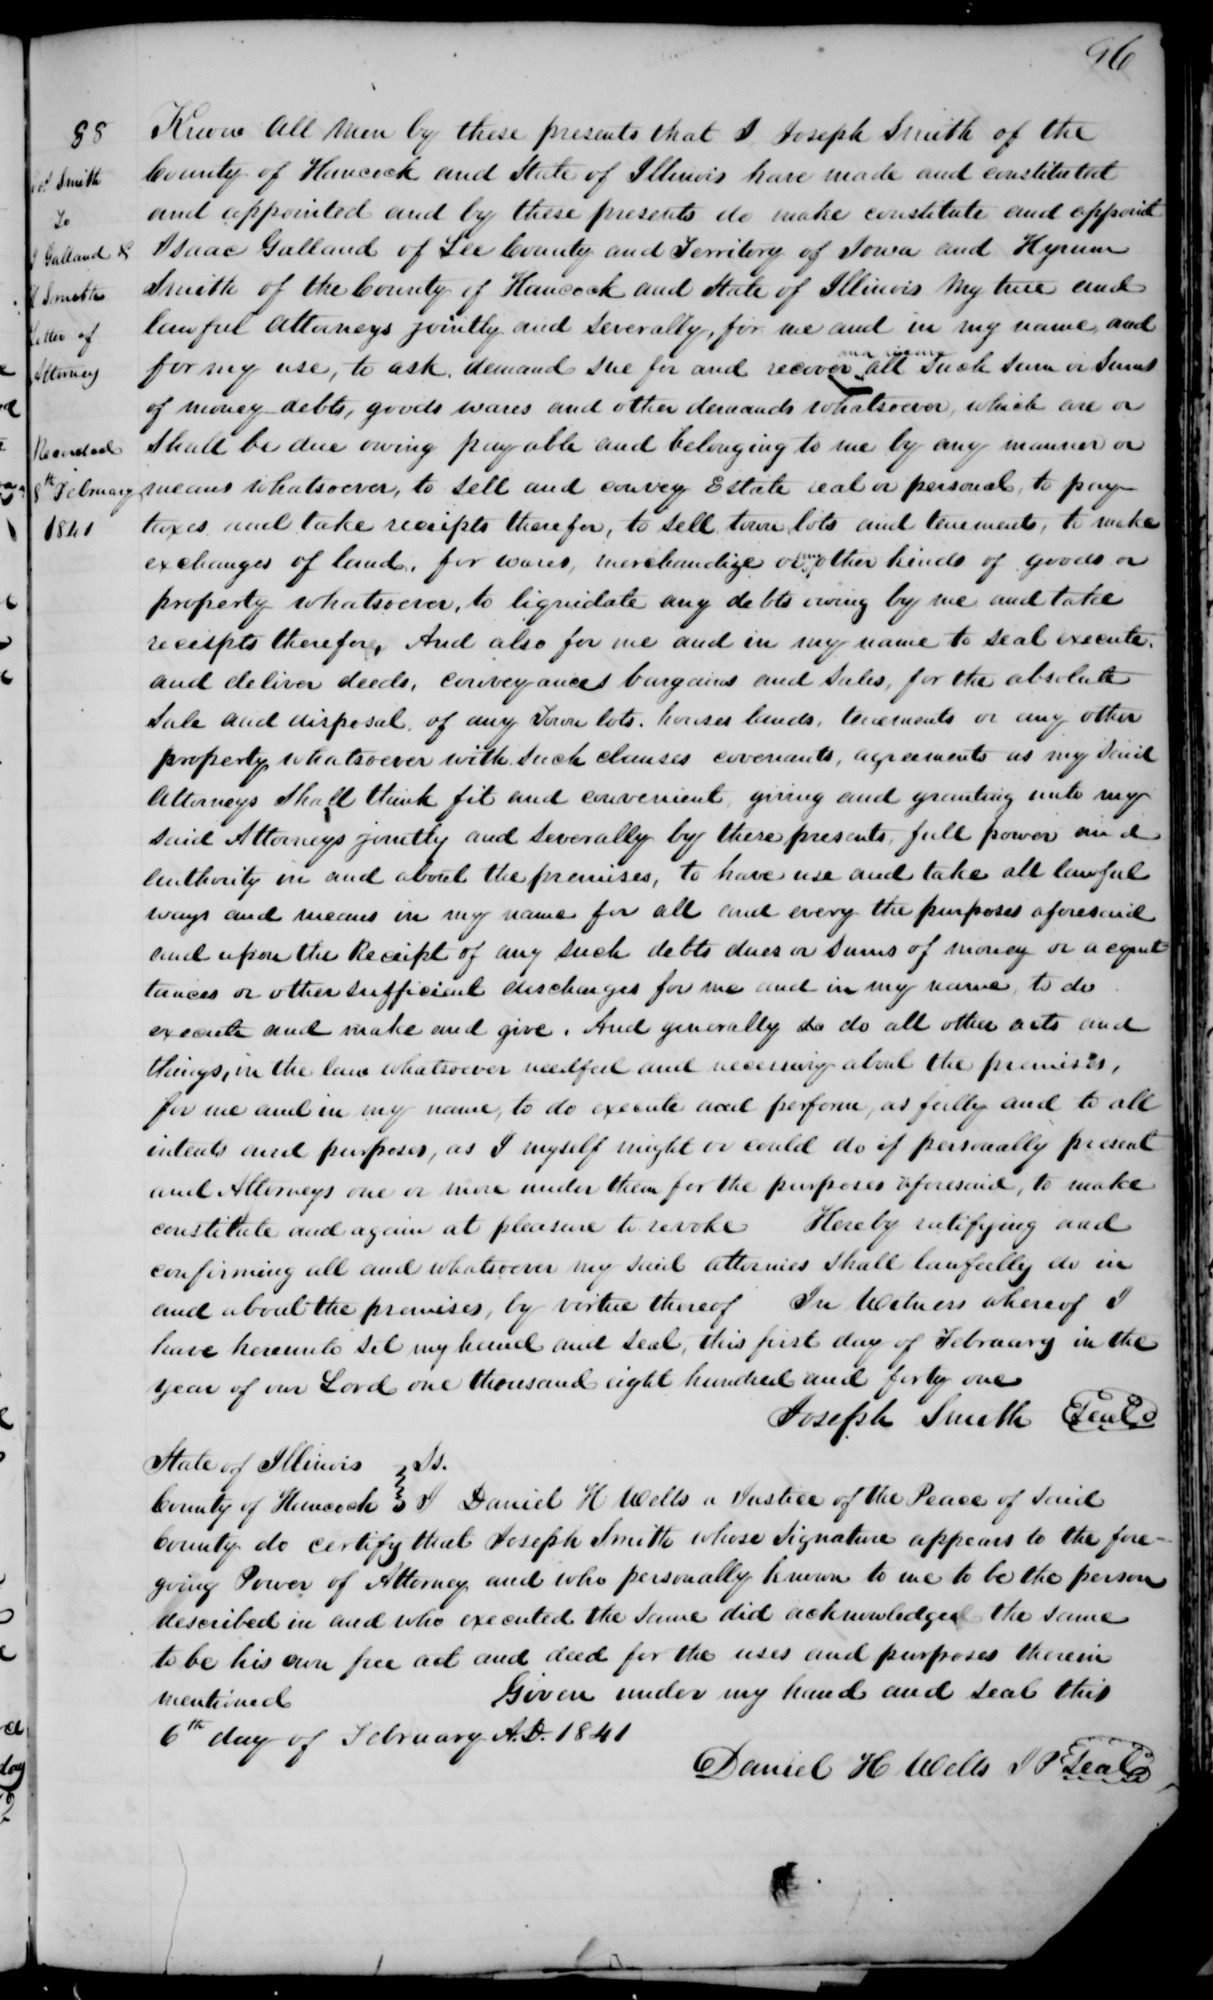 96
88
Jos Smith
To
I Galland &
H Smith
Letter of
Attorney
Recorded
8th February
1841
Know all Men by these presents that I Joseph Smith of the
County of Hancock and State of Illinois have made and constituted
and appointed and by these presents do make constitute and appoint
Isaac Galland of Lee County and Territory of Iowa and Hyrum
Smith of the County of Hancock and State of Illinois My true and
lawful Attorneys jointly and Severally, for me and in my name, and
for my use, to ask, demand Sue for and recover all Such Sum or Sums
of money debts, goods wares and other demands whatsoever, which are or
Shall be due owing payable and belonging to me by any manner or
means whatsoever, to Sell and convey Estate real or personal, to pay
taxes and take receipts therefor, to Sell town lots and tenements, to make
exchanges of land, for wares, merchandize or any other kinds of goods or
property whatsoever, to liquidate any debts owing by me and take
receispts therefore, And also for me and in my name to Seal execute,
and deliver deeds, conveyances bargains and Sales, for the absolute
Sale and disposal, of any Town lots, houses lands, tenements or any other
property whatsoever with Such clauses covenants, agreements as my Said
Attorneys Shall think fit and convenient, giving and granting unto my
said Attorneys jointly and Severally by these presents, full power and
authority in and about the premises, to have use and take all lawful
ways and means in my name for all and every the purposes aforesaid
and upon the Receipt of any Such debts dues or Sums of money or acquit
tances or other Sufficient discharges for me and in my name, to do
execute and make and give. And generally do do all other acts and
things, in the law whatsoever needful and necessary about the premises,
for me and in my name, to do execute and perform, as fully and to all
intents and purposes, as I myself might or could do if personally present
and Attorneys one or more under them for the purposes aforesaid, to make
constitute and again at pleasure to revoke Hereby ratifying and
confirming all and whatsoever my Said attornies Shall lawfully do in
and about the premises, by virtue thereof In Witness whereof I
have hereunto Set my hand and Seal, this first day of February in the
year of our Lord one thousand eight hundred and forty one
Joseph Smith Seal
State of Illinois Ss.
County of Hancock I Daniel H Wells a Justice of the Peace of Said
County do certify that Joseph Smith whose Signature appears to the fore-
going Power of Attorney and who personally known to me to be the person
described in and who executed the Same did acknowledged the Same
to be his own free act and deed for the uses and purposes therein
mentioned Given under my hand and Seal this
6th day of February A.D. 1841
Daniel H Wells J P Seal